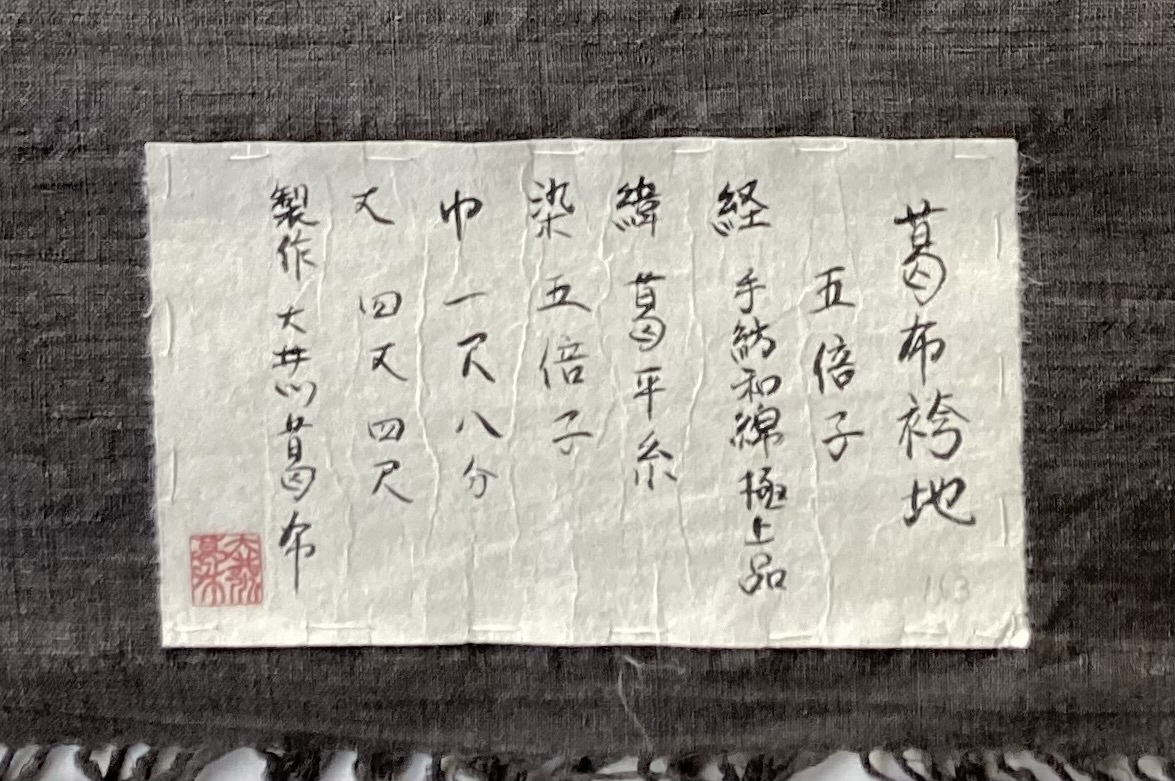 葛布袴地
五倍子
経 手紡和綿極上品
緯 葛平糸
染 五倍子
巾 一尺八分
丈 四丈四尺
製作 大井川葛布
163